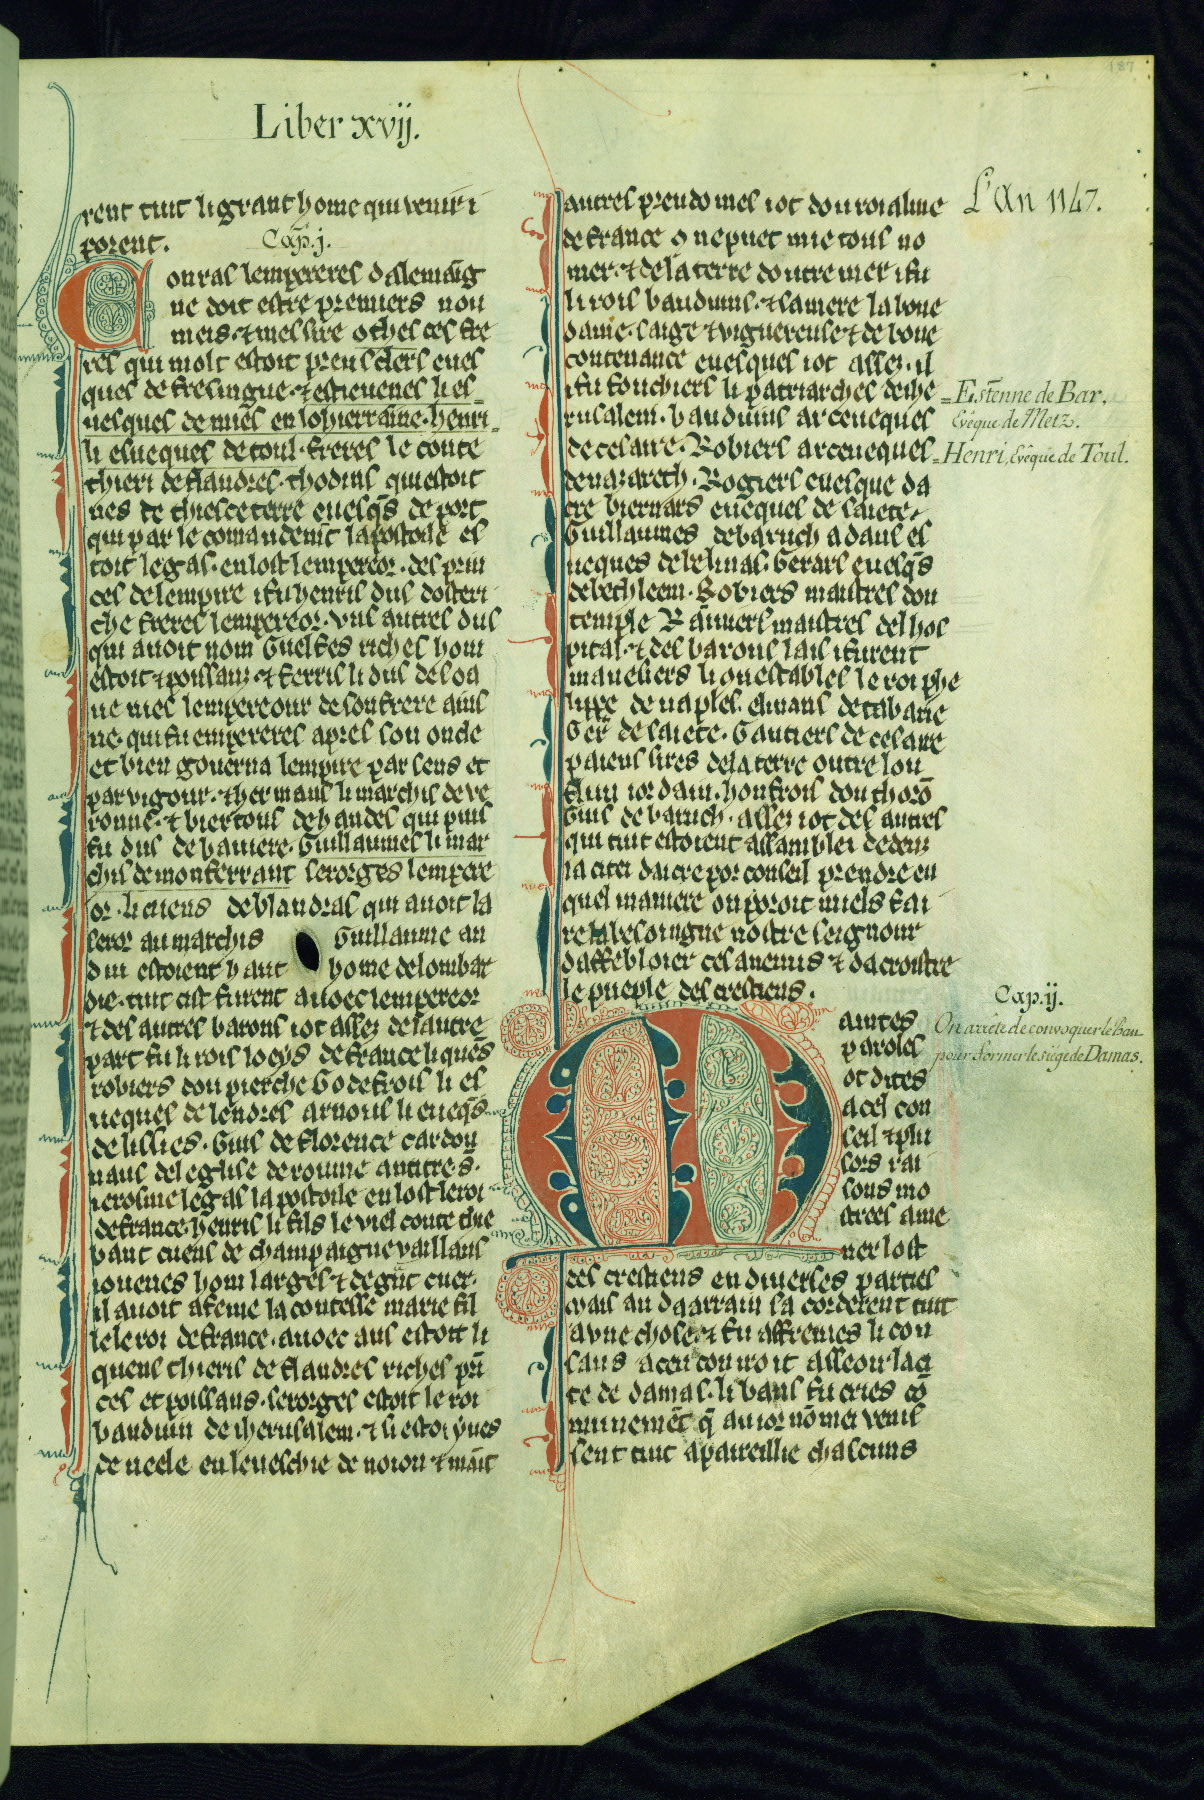 187
Liber xvij.
rent tuit li grant home qui venir i
porent.
Cap. j.
Conras lempereres dalemaig
ne doit estre premiers nou
meis · et messire othes ces fre
res qui molt estoit preus clers eues
ques de fresingue · et estieuenes li es
uesques de mies en loherraine · henri
li esueques de toul · freres le conte
thieri de flandres · thodins qui estoit
nes de thiesceterre euesqs de port
qui par le comandemt lapostoile es
toit legas · en lost lempereor · des prin
ces de lempire i fu henris dus dosteri
che freres lempereor · vns autres dus
qui auoit nom Guelfes riches hom
estoit et poissanz · et ferris li dus de soa
ue nies lempereour de son frere ains
ne · qui fu empereres apres son oncle
et bien gouerna lempire par sens et
par vigour · et hermans li marchis de ve
ronne · et biertous de handes qui puis
fu dus de baniere · Guillaumes li mar
chis de monferrant serorges lempere
or · li cuens de blandras qui auoit la
seror au marchis Guillaume an
dui estoient haut home de lombar
die · tuit cist furent auoec lempereor
et des autres barons iot assez de lautre
part fu li rois loeys de france li quens
robiers dou pierche Godefrois li es
ueques de lendres arnous li eueqs
de lisiies · Guis de florence cardou
naus del eglise de roume antitre · s ·
ierosme legas lapostoile en lost le roi
de france · henris li fils le viel conte thie
baut cuens de champaigne vaillans
iouenes hom larges et de gnt cuer ·
il auoit a feme la contesse marie fil
le le roi de france · auoec aus estoit li
quens thieris de flandres riches pri
ces et poissans · serorges estoit le roi
bauduin de iherusalem · et si estoi yues
de neele en leueschie de noion et mait
autres preudomes iot dou roialme
de france on e puet mie tous no
mer · et de la terre doutre mer i fu
li rois bauduins · et sa mere la bone
dame · saige et viguereuse et de bone
contenance euesques iot assez · il
i fu fouchiers li patriarches de ihe
rusalem · bauduins arceueques
de cesaire · Robiers arceueques
de nazareth · Rogiers euesque da
cre biernars eueques de saiete ·
Guillaumes de baruch adans es
ueques de belinas · Gerars euesqs
de bethleem · Robiers maistres dou
temple Raimers maistres del hos
pital · et des barons lais i furent
maneliers li questables le roi phe
lippe de naples · elinans de tabarie
Ger de saiete · Gautiers de cesaire
paiens sires de la terre outre lou
flun iordain · honfrois dou thoro
Guis de baruch · assez iot des autres
qui tuit estoient assamblei dedenz
la citei dacre por conseil prendre en
quel maniere on poroit miels fai
re la besoingne nostre seignour
daffebloier ces anemis et dacroistre
le pueple des crestiens ·
Cap. ij.
Maintes
paroles
ot dites
a cel con
seil et plu
sors rai
sons mo
strees a me
ner lost
des crestiens en diuerses parties
Mais au daarrain sa corderent tuit
a vne chose · et fu affremes li con
saus a ceu con iroit asseoir la ci
te de damas · li bans fu cries co
munemet q au ior nomei venis
sent tuit apareillie chascuns
L'An 1147.
= Estienne de Bar,
Evêque de Metz.
= Henri, Evêque de Toul.
On arrête de convoquer le Ban
pour former le siége de Damas.